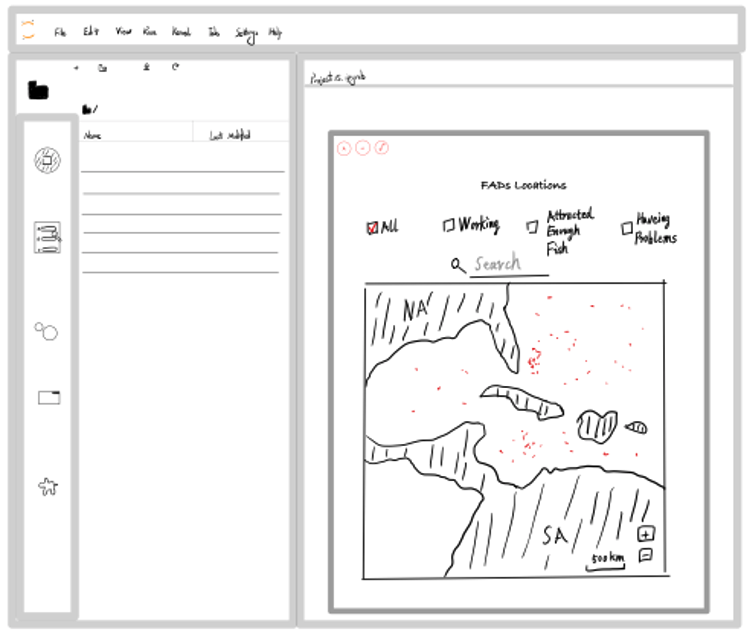 File Edit View Run Kernel Tabs Settings Help
Name Last Modified
Project 15. ipynb
FADs Locations
All Working Attracted Enough Fish Haveing Problems
Search
NA
SA
500 km